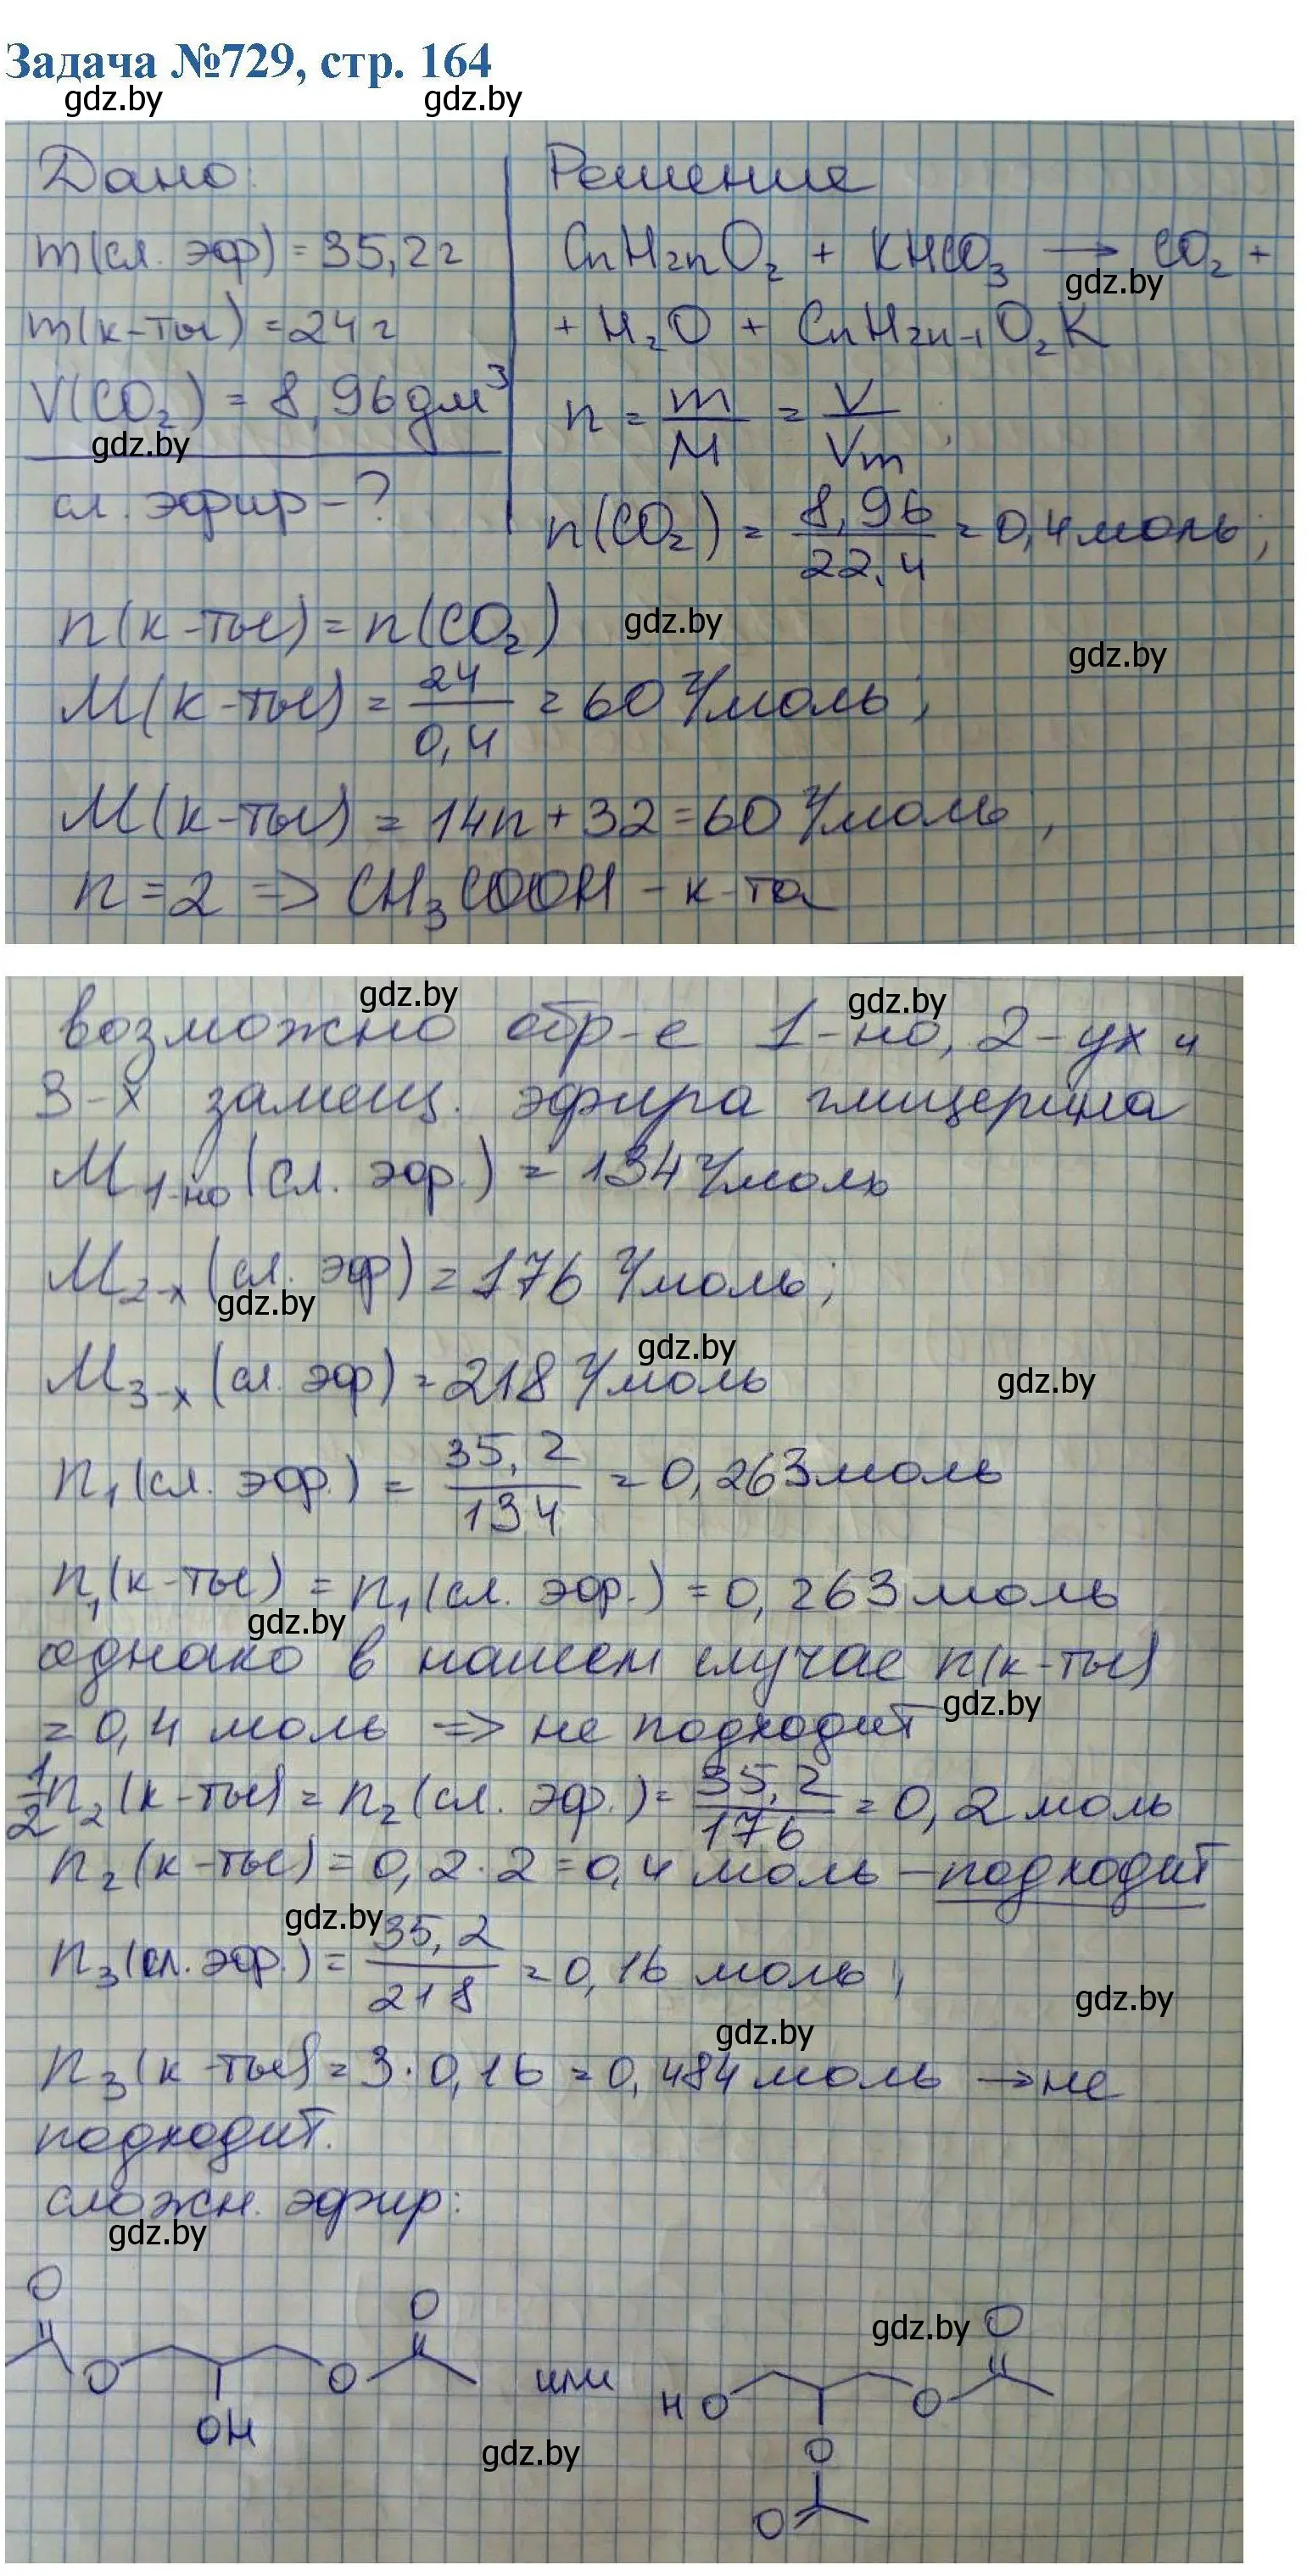 Задача №729, стр. 164
gdz.by gdz.by
Дано: Решение
m(сл. эфр) = 35,2г CnH2nO2 + KHCO3 → CO2 +
gdz.by
m(к-ты) = 24г + H2O + CnH2n-1O2K
V(CO2) = 8,96дм³ n = m/M = V/Vm;
gdz.by
сл. эфир - ? n(CO2) = 8,96/22,4 = 0,4 моль;
n(к-ты) = n(CO2) gdz.by
gdz.by
M(к-ты) = 24/0,4 = 60 г/моль;
M(к-ты) = 14n + 32 = 60 г/моль,
n = 2 => CH3COOH - к-та
gdz.by gdz.by
возможно обр-е 1-но, 2-ух и
3-х замещ. эфира глицерина
M1-но(сл. эфр.) = 134 г/моль
M2-х(сл. эфр) = 176 г/моль;
gdz.by
gdz.by
M3-х(сл. эфр) = 218 г/моль
gdz.by
n1(сл. эфр.) = 35,2/134 = 0,263моль
n1(к-ты) = n1(сл. эфр.) = 0,263моль
gdz.by
однако в нашем случае n(к-ты)
gdz.by
= 0,4 моль => не подходит
1/2n2(к-ты) = n2(сл. эфр.) = 35,2/176 = 0,2 моль
n2(к-ты) = 0,2·2 = 0,4 моль - подходит
gdz.by
n3(сл. эфр.) = 35,2/218 = 0,16 моль;
gdz.by
gdz.by
n3(к-ты) = 3·0,16 = 0,484моль → не
подходит.
сложн. эфир:
gdz.by
O O gdz.by O
O O или HO O
OH
gdz.by
O
O